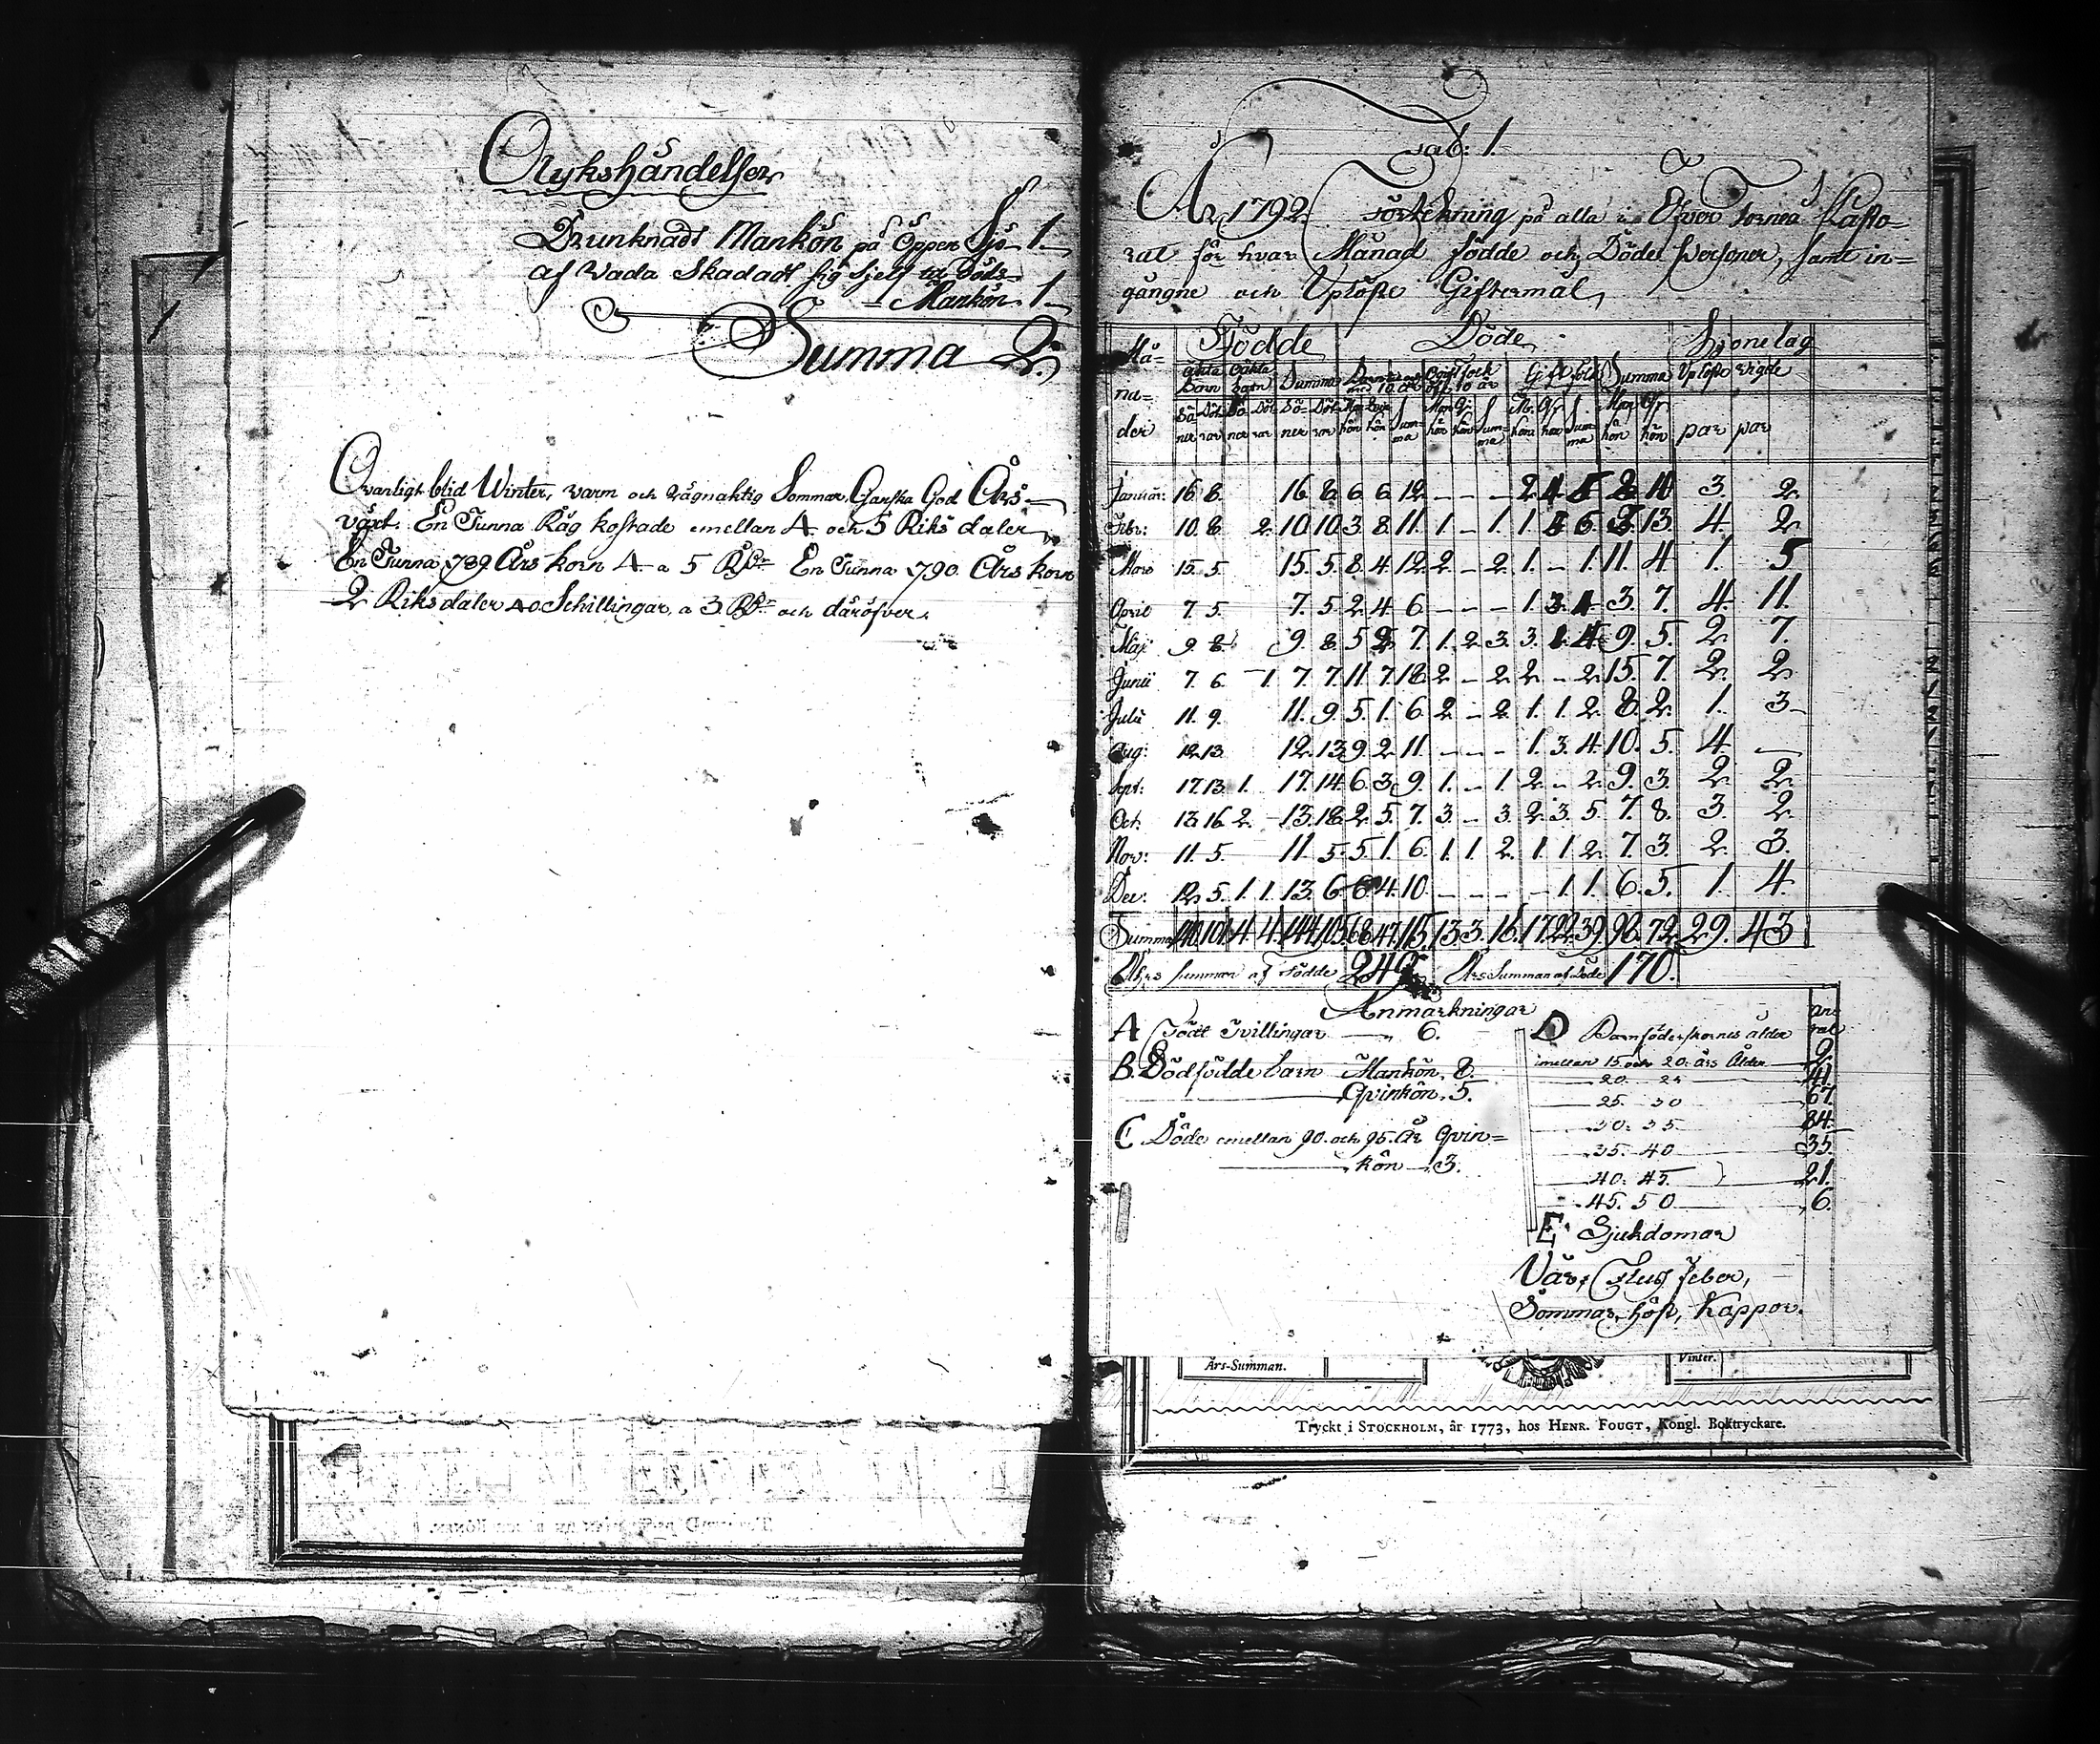 Olykshändelser
Drunknadt Mankön på Öppen Sjö 1.
af Vada Skadadt sig sjelf til Döds
Mankön. 1.
Summa 2.
Ovanligt blid Winter, varm och rägnaktig Sommar, Ganska God Års-
växt. En Tunna Råg kostade emellan 4 och 5 Riks daler
En Tunna 789 Års korn 4 a 5 Rdr En Tunna 790 Års korn
2 Riksdaler 40 Schillingar a 3 Rdr och däröfver.
Tab: 1.
År 1792 Förtekning på alla i Öfver Torneå Pasto-
rat för hvar Månad födde och Döde Personer, samt in=
gångne och Uplöste Giftermål
Må= Födde Döde Hjonelag
na= Äkta Barn Oäkta Barn Summa Giftfolk Summa Uplöste vigde
der par par
Januar: 16 8. 16 8 6 6 12 - - - 2 4 5 8 10 3. 2.
Febr: 10. 8 2. 10 10 3 8 11 1 - 1. 1 5 6 5 13. 4. 2
Mars 15. 5. 15. 5. 8. 4. 12. 2 - 2. 1. - 1. 11. 4 1. 5
April 7. 5. 7. 5 2 4 6 - - - 1. 3. 4. 3. 7. 4. 11.
Maji 9. 8. 9. 8. 5 2 7. 1. 2. 3. 3. 1. 4. 9. 5. 2. 7.
Junii 7. 6. 1. 7 7. 11. 7. 18. 2 - 2. 2. - 2. 15. 7. 2. 2.
Julii 11. 9. 11. 9. 5. 1. 6. 2 - 2. 1. 1. 2. 8. 2. 1. 3
Aug: 12. 13 12. 13. 9. 2. 11. - - - 1. 3. 4. 10. 5. 4. -
Sept: 17. 13. 1. 17. 14. 6. 3. 9. 1. - 1. 2. - 2. 9. 3. 2. 2.
Oct. 13. 16. 2. 13. 18. 2. 5. 7. 3. - 3. 2. 3. 5. 7. 8. 3. 2.
Nov: 11. 5. 11. 5. 5. 1. 6. 1. 1. 2. 1. 1. 2. 7. 3. 2. 3.
Dec: 12. 5. 1. 1. 13. 6 6 4. 10 - - - - 1. 1. 6. 5. 1. 4.
Summa 140. 101. 4. 4. 144. 105. 68. 47. 115. 13. 3. 16. 17. 22. 39. 98. 72. 29. 43
Åhrs Summan af födde 249. Års Summan af Döde 170.
Anmärkningar
A Födt Tvillingar 6.
B. Dödfödde barn Mankön. 8.
Qvinkön. 5.
C Döde emellan 90. och 95. År Qvin=
kön 3.
D Barnföderskornes ålder
emellan 15. och 20. års Ålder 9.
20. 25 41.
25. 30 67
30. 35 84.
35. 40 35.
40. 45. 21.
45. 50 6.
E. Sjukdomar
Vår, Fluss feber,
Sommar, höst, Koppor.
Års-Summan.
Vinter.
Tryckt i STOCKHOLM, år 1773, hos HENR. FOUGT, Kongl. Boktryckare.